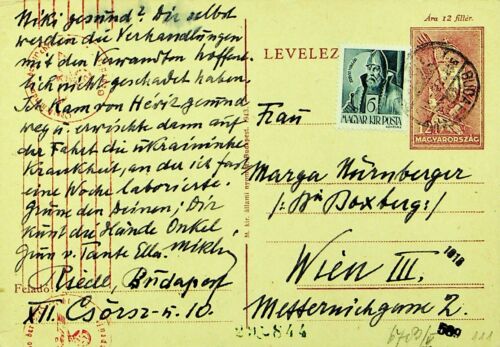 Niki gesund? Dir selbst
werden die Verhandlungen
mit den Verwandten hoffent-
lich nicht geschadet haben.
Ich kam von Héviz gesund
weg u. erwischte dann auf
der Fahrt die ukrainische
Krankheit, an der ich fast
eine Woche laborierte.
Grüsse den Deinen; Dir
küsst die Hände Onkel
Gruss v. Tante Ella.
Feladó: Riedl, Budapest
XII. Csörsz-u. 10.
Ára 12 fillér.
LEVELEZ
6
MAGYAR KIR. POSTA
BUDA
MAGYARORSZÁG
Frau
Marga Nürnberger
Boxberg
Wien III.
1018
Metternichgasse 2.
844
569